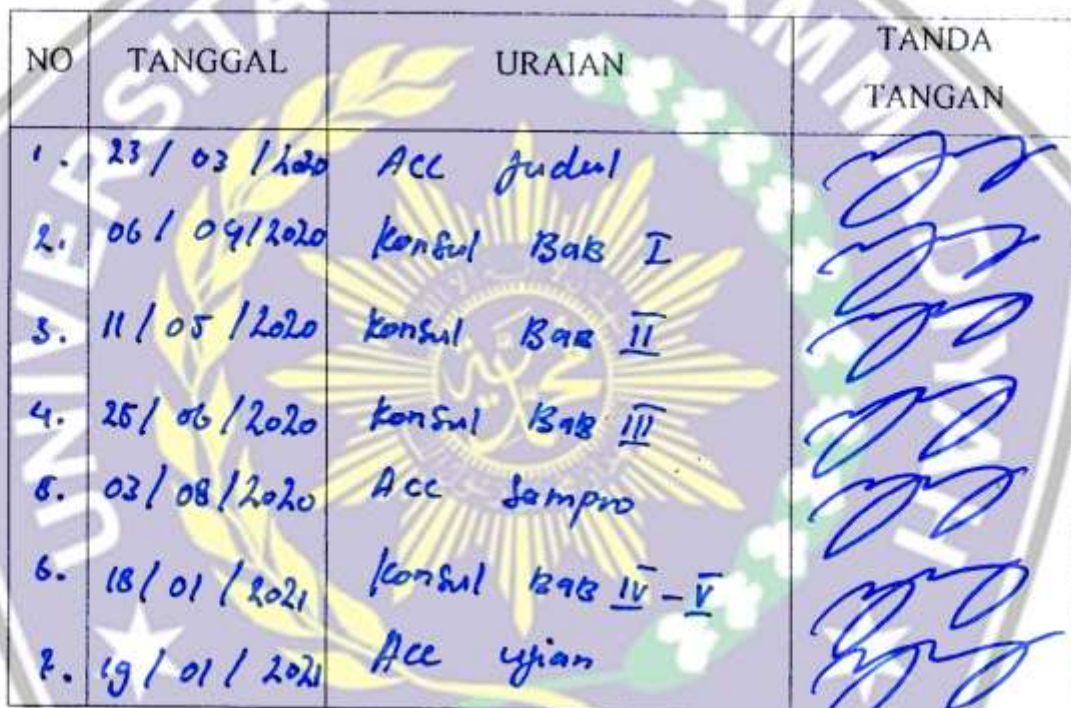 NO TANGGAL URAIAN TANDA TANGAN
1. 23 / 03 / 2020 Acc Judul
2. 06 / 04 / 2020 Konsul BaB I
3. 11 / 05 / 2020 Konsul BaB II
4. 25 / 06 / 2020 Konsul BaB III
5. 03 / 08 / 2020 Acc Sempro
6. 18 / 01 / 2021 Konsul BaB IV - V
7. 19 / 01 / 2021 Acc Ujian
UNIVERSITA AMMADIYAH